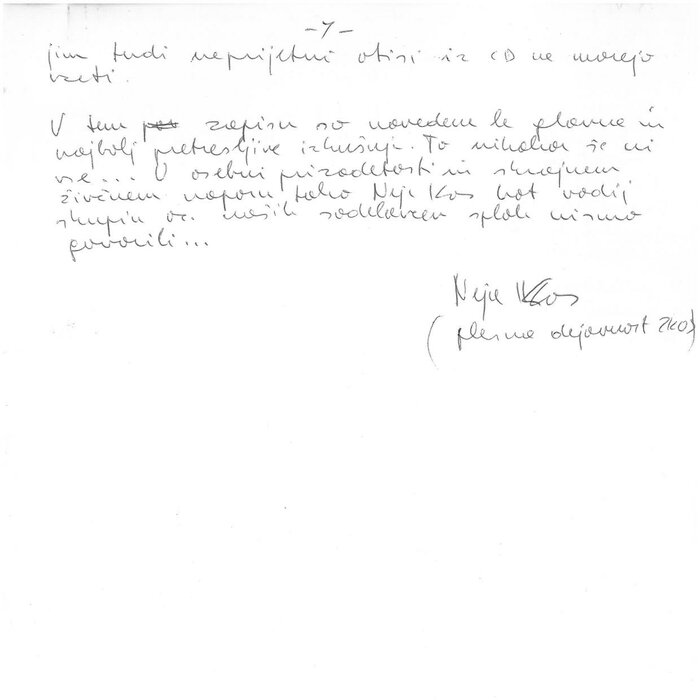 -7-
jim tudi neprijetni otisi iz CD ne morejo
vzeti.
V tem zapisu so navedene le glavne in
najbolj pretresljive izkušnje. To nikakor še ni
vse... O osebni prizadetosti in skrajnem
živčnem naporu tako Neje Kos kot vodij
skupin oz. naših sodelavcev sploh nismo
govorili...
Neja Kos
(plesna dejavnost ZKOS)